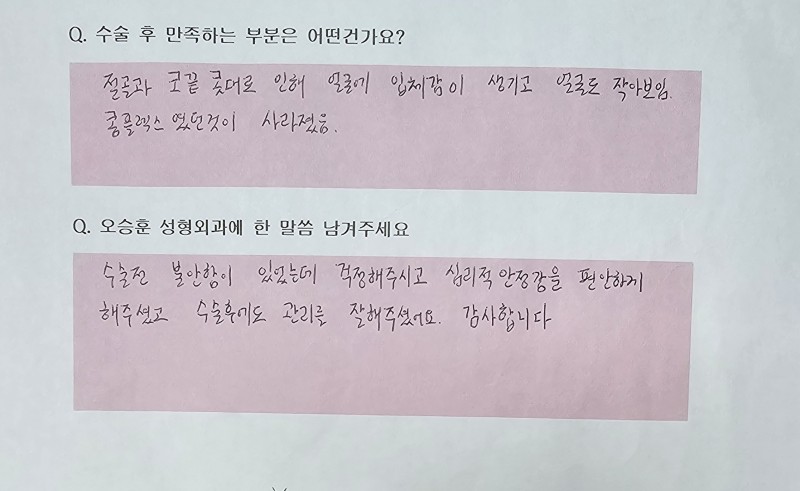 Q. 수술 후 만족하는 부분은 어떤건가요?
절골과 코끝 콧대로 인해 얼굴에 입체감이 생기고 얼굴도 작아보임.
콤플렉스였던것이 사라졌음.
Q. 오승훈 성형외과에 한 말씀 남겨주세요
수술전 불안함이 있었는데 걱정해주시고 심리적 안정감을 편안하게
해주셨고 수술후에도 관리를 잘해주셨어요. 감사합니다